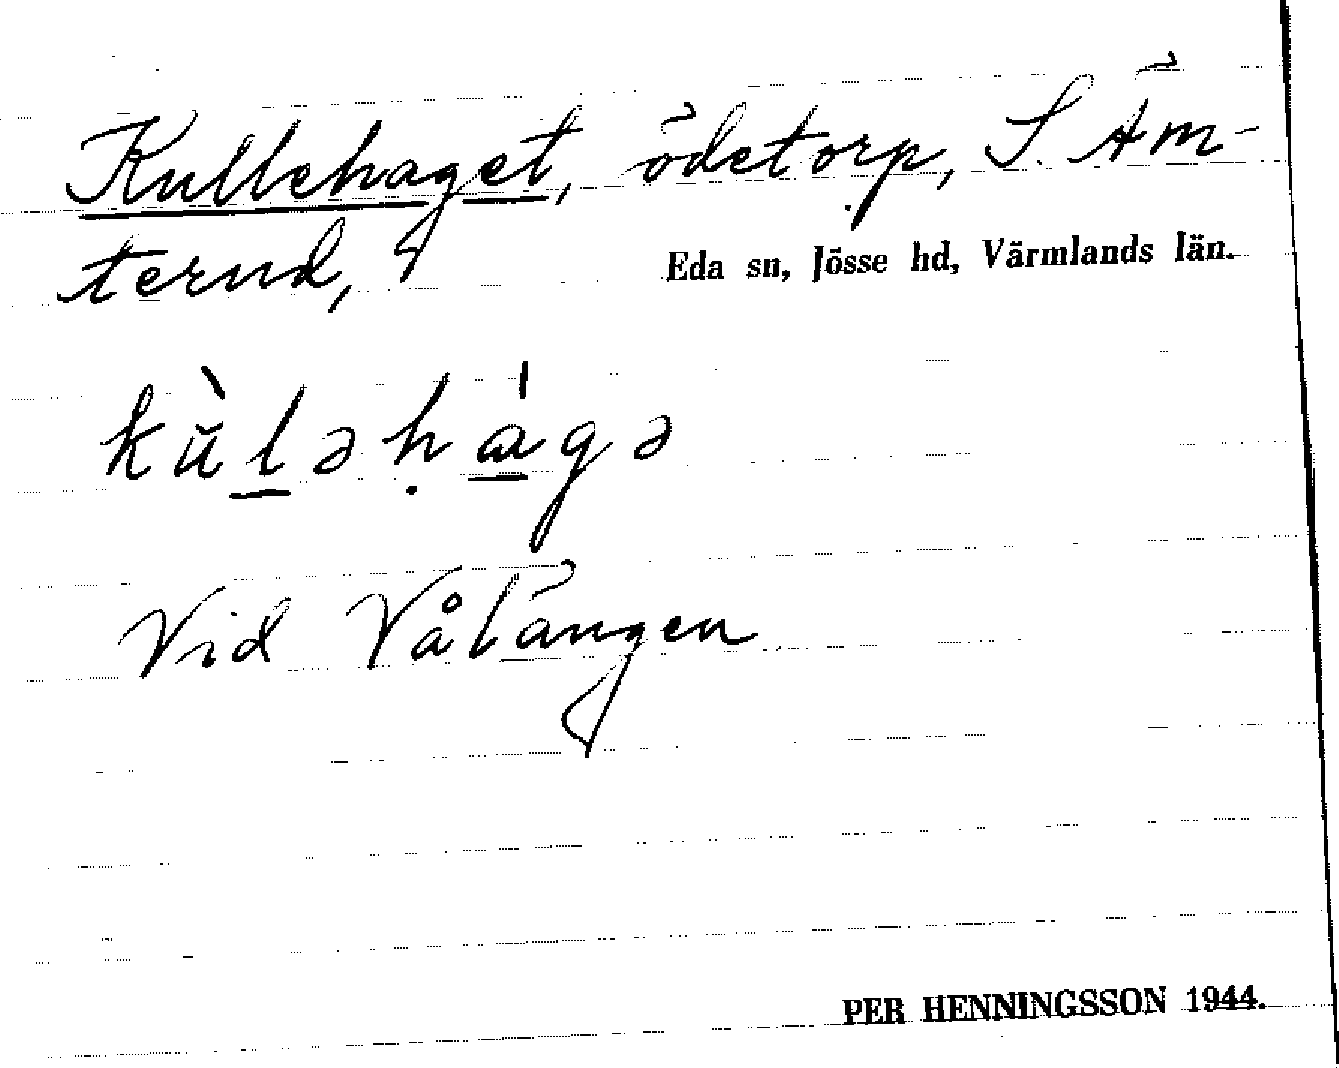 Kullehaget, ödetorp, S. Äm-
terud,
Eda sn, Jösse hd, Värmlands län.
kŭ̀l̠əḥa̠̍gə
Vid Vålängen
PER HENNINGSSON 1944.